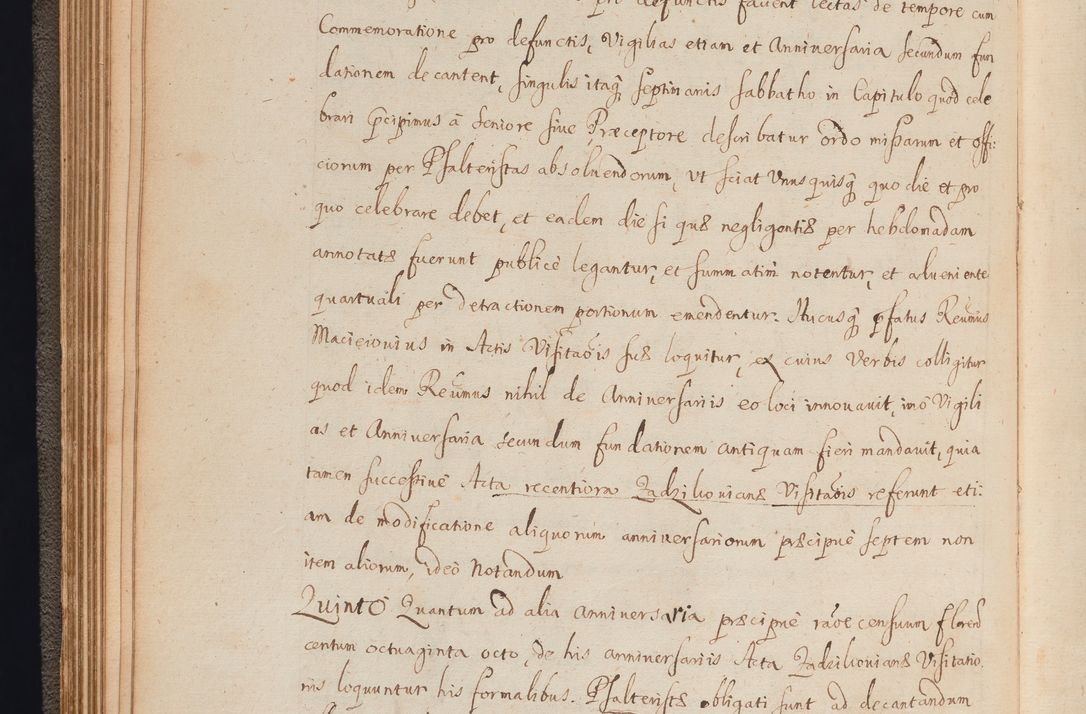 pro defunctis facient lectas de tempore cum
Commemoratione pro defunctis, Vigilias etiam et Anniversaria secundum fun
dationem decantent, singulis itaq septimanis sabbatho in Capitulo quod cele
brari pcipimus â Seniore sive Præceptore describatur ordo missarum et offi:
ciorum per Psalteristas absoluendorum, ut sciat Unusquisq quo die et pro
quo celebrare debet, et eadem die si quæ negligentiæ per hebdomadam
annotatæ fuerunt publicè legantur, et summatim notentur, et adueniente
quartuali per detractionem portionum emendentur. Hucusq pfatus Reumus
Macieiouius in Actis Visitaois suæ loquitur, ex cuius verbis colligitur
quod idem Reumus nihil de Anniversariis eo loci innouauit, imò Vigili
as et Anniversaria secundum fundationem antiquam fieri mandauit, quia
tamen successiuè Acta recentiora Zadzikouianæ Visitaois referunt eti:
am de modificatione aliquorum anniversariorum præcipuè septem non
item aliorum, ideò Notandum
Quintò Quantum ad alia Anniversaria præcipuè raoe censuum floren
centum octuaginta octo, de his anniversariis Acta Zadzikouianæ Visitatio
nis loquuntur his formalibus. Psalteristæ obligati sunt ad decantandum